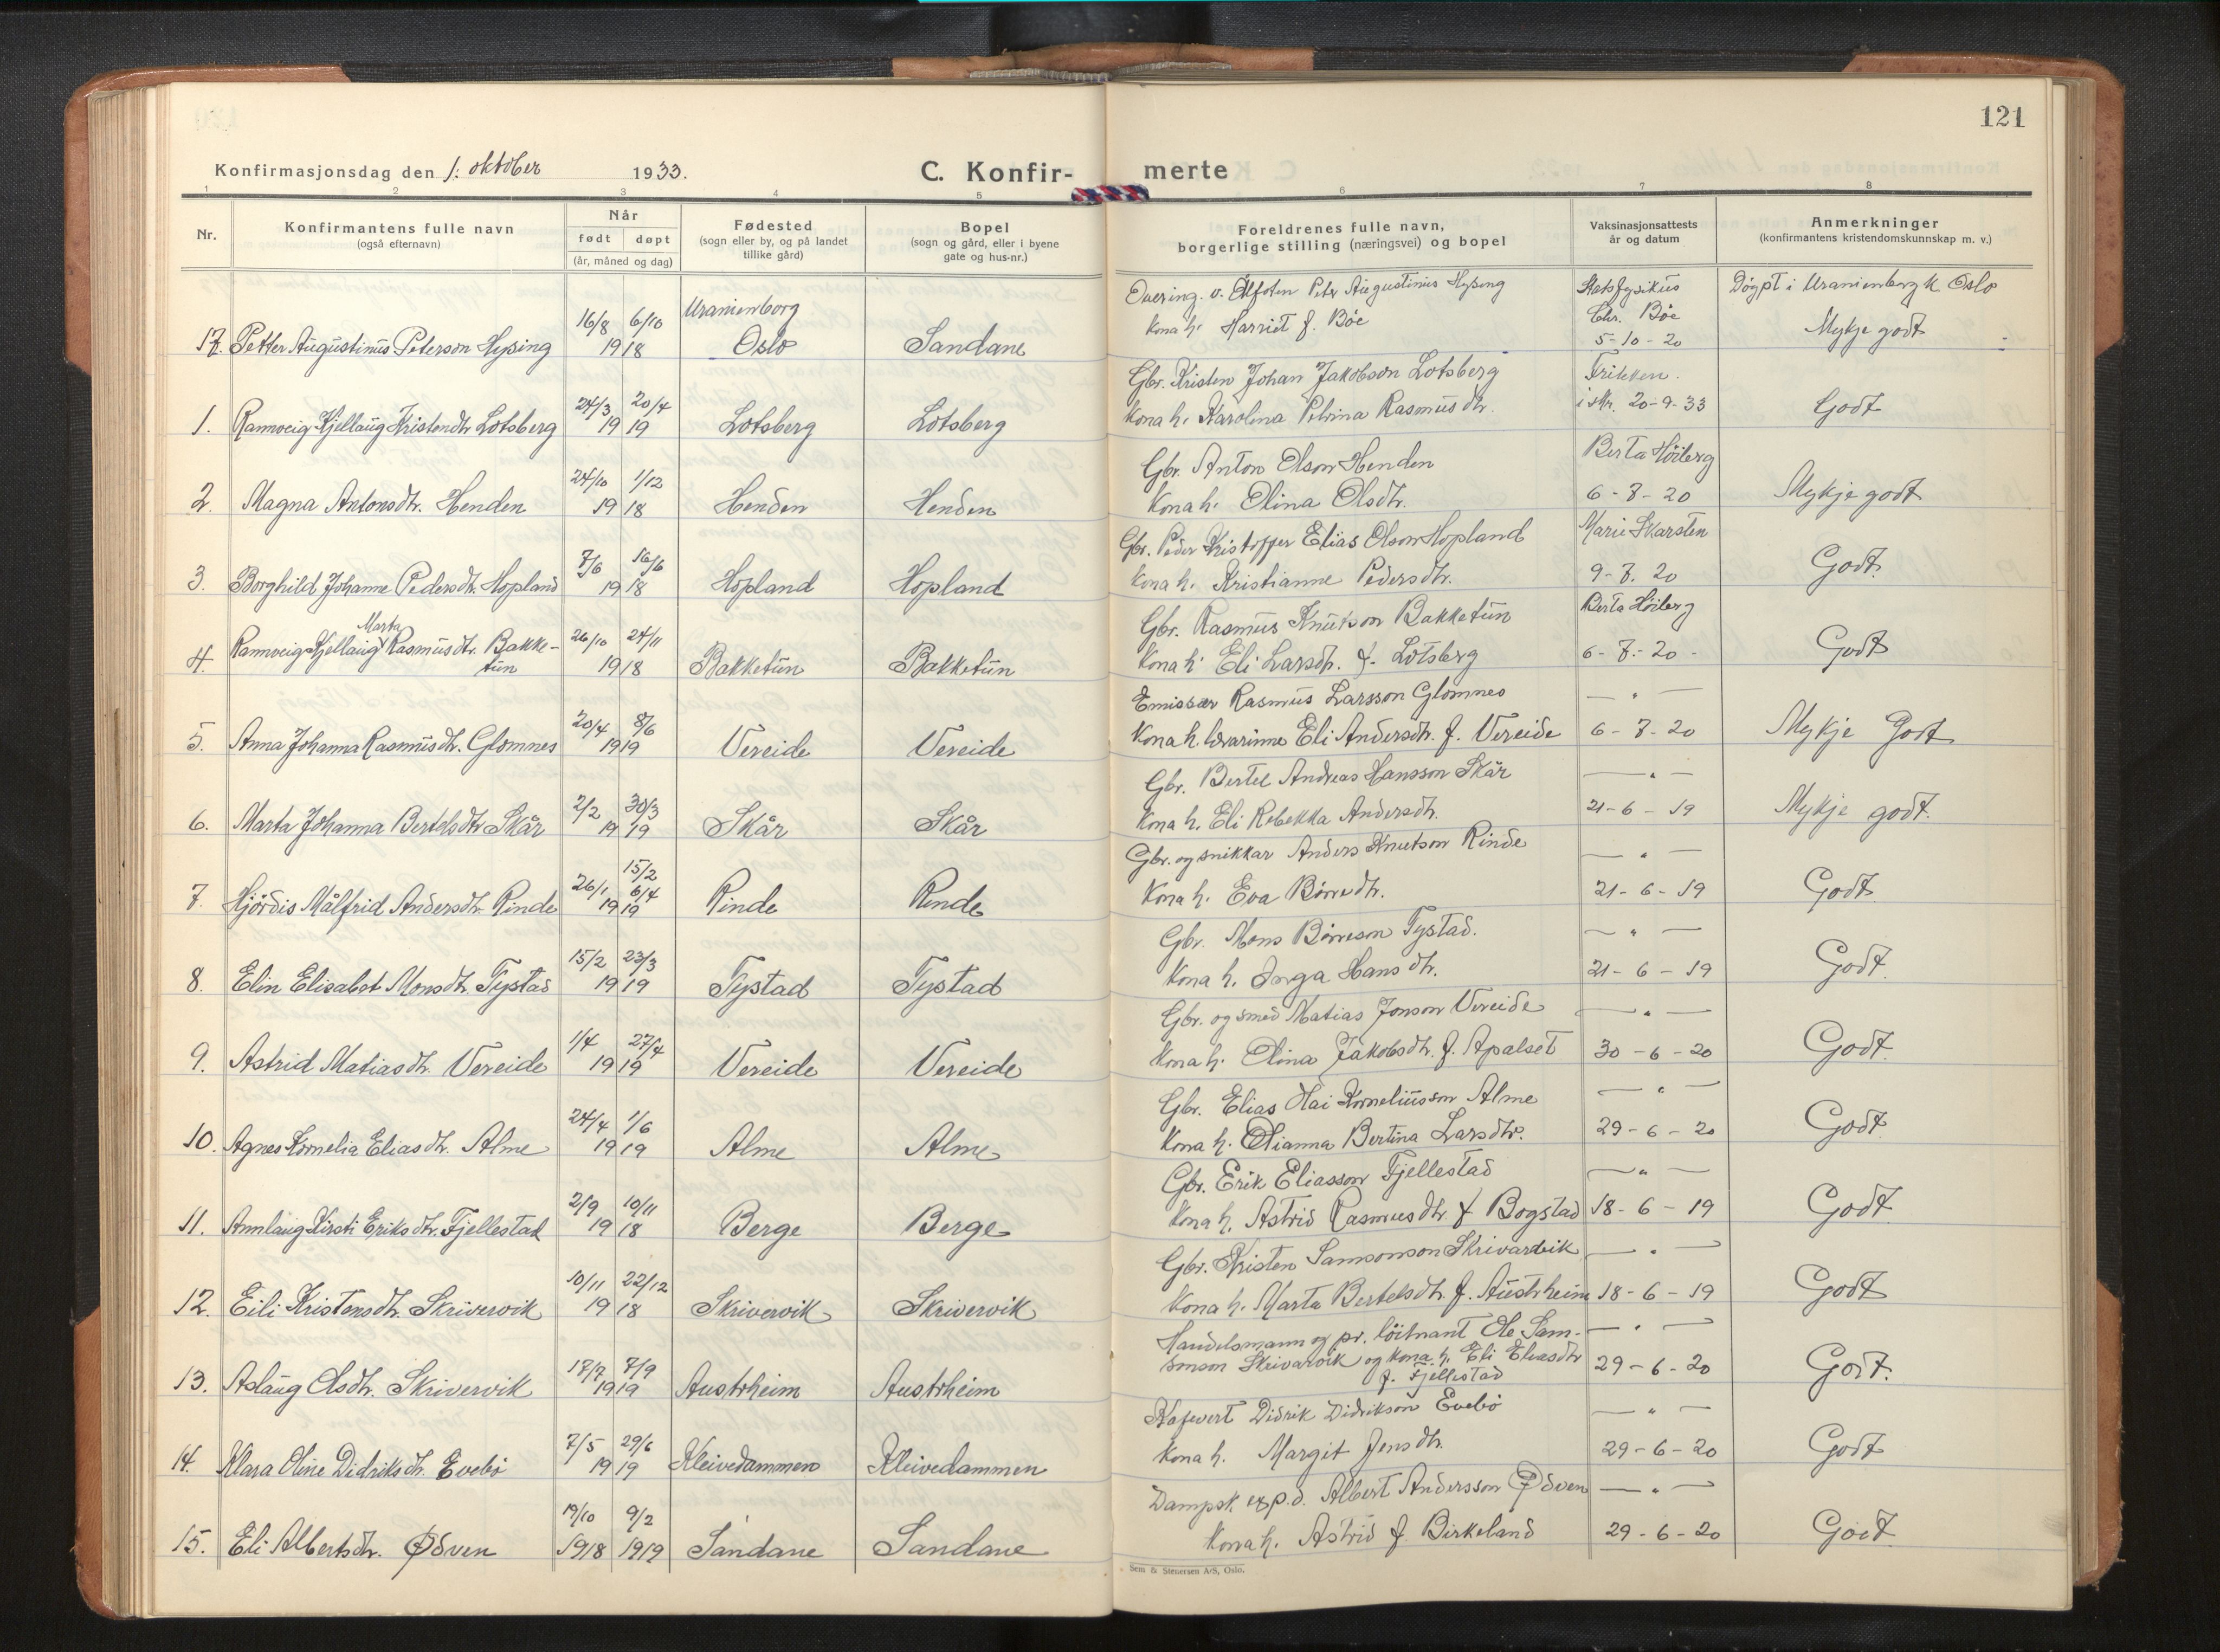 121
Konfirmasjonsdag den 1. oktober 1933.
C. Konfir-
merte
1 2 3 4 5 6 7 8
Nr.
Konfirmantens fulle navn
(også efternavn)
Når
født døpt
(år, måned og dag)
Fødested
(sogn eller by, og på landet
tillike gård)
Bopel
(sogn og gård, eller i byene
gate og hus-nr.)
Foreldrenes fulle navn,
borgerlige stilling (næringsvei) og bopel
Vaksinasjonsattests
år og datum
Anmerkninger
(konfirmantens kristendomskunnskap m. v.)
16/8 6/10 Uranienborg v. Ålfoten Peter Augustinus Hysing Statsfysikus Døypt i Uranienborg k. Oslo
17. Petter Augustinus Peterson Hysing 1918 Oslo Sandane kona h. Harriet f. Böe Chr. Böe Mykje godt
5-10-20
24/3 20/4 Gbr. Kristen Johan Jakobson Lotsberg
1. Rannveig Kjellaug Kristendtr Lotsberg 1919 Lotsberg Lotsberg kona h. Karolina Petrina Rasmusdtr. 20-9-33 Godt
24/10 1/12 Gbr. Anton Olson Henden Berta Höiberg
2. Magna Antonsdtr. Henden 1918 Henden Henden kona h. Olina Olsdtr. 6-7-20 Mykje godt
7/6 16/6 Gbr. Peder Kristoffer Elias Olson Hopland Marie Skarsten
3. Borghild Johanne Pedersdtr. Hopland 1918 Hopland Hopland kona h. Kristianne Pedersdtr. 9-7.20 Godt.
Marta 26/10 24/11 Gbr. Rasmus Knutson Bakketun Berta Höiberg
4. Rannveig Kjellaug Rasmusdtr. Bakke-
tun 1918 Bakketun Bakketun kona h. Eli Larsdtr. f. Lotsberg 6-7-20 - Godt
20/4 8/6 Emissær Rasmus Larsson Glomnes — " —
5. Anna Johanna Rasmusdtr. Glomnes 1919 Vereide Vereide kona h. lærarinne Eli Andersdtr. f. Vereide 6-7-20 Mykje Godt
2/2 30/3 Gbr. Bertel Andreas Hansson Skår — " —
6. Marta Johanna Bertelsdtr Skår 1919 Skår Skår kona h. Eli Rebekka Andersdtr. 21-6-19 Mykje godt.
15/2
26/1 6/4 Gbr. og snikkar Anders Knutson Rinde — " —
7. Hjördis Målfrid Andersdtr. Rinde 1919 Rinde Rinde kona h. Eva Börredtr. 21-6-19 Godt
15/2 23/3 Gbr. Mons Börreson Tystad. — " —
8. Elin Elisabet Monsdtr. Tystad 1919 Tystad Tystad kona h. Inga Hansdtr. 21-6-19 Godt.
1/4 27/4 Gbr. og smed Matias Jonson Vereide — " —
9. Astrid Matiasdtr. Vereide 1919 Vereide Vereide kona h. Olina Jakobsdtr. f. Apalset 30-6-20 Godt.
24/4 1/6 Gbr. Elias Kai Korneliusson Alme — " —
10. Agnes Kornelia Eliasdtr. Alme 1919 Alme Alme kona h. Olianna Bertina Larsdtr. 29-6-20 Godt
2/9 10/11 Gbr. Erik Eliasson Fjellestad — " —
11. Annlaug Kirsti Eriksdtr. Fjellestad 1918 Berge Berge kona h. Astrid Rasmusdtr f. Bogstad 18-6-19 Godt
10/11 22/12 Gbr. Kristen Samsonson Skrivarvik — " —
12. Eili Kristensdtr. Skrivervik 1918 Skrivervik Skrivervik kona h. Marta Bertelsdtr. f. Austrheim 18-6-19 Godt
17/7 7/9 Handelsmann og pr. löitnant Ole Sam- — " —
13. Aslaug Olsdtr. Skrivervik 1919 Austrheim Austrheim sonson Skrivarvik og kona h. Eli Eliasdtr 29-6-20 Godt.
f. Fjellestad
7/5 29/6 Kafevert Didrik Didrikson Evebö — " —
14. Klara Oline Didriksdtr. Evebö 1919 Kleivedammen Kleivedammen kona h. Margit Jensdtr. 29-6-20 Godt
19/10 9/2 Dampsk. exp.d. Albert Andersson Ødven — " —
15. Eli Albertsdtr. Ødven 1918 1919 Sandane Sandane kona h. Astrid f. Birkeland 29-6-20 Godt
Sem & Stenersen A/S, Oslo.